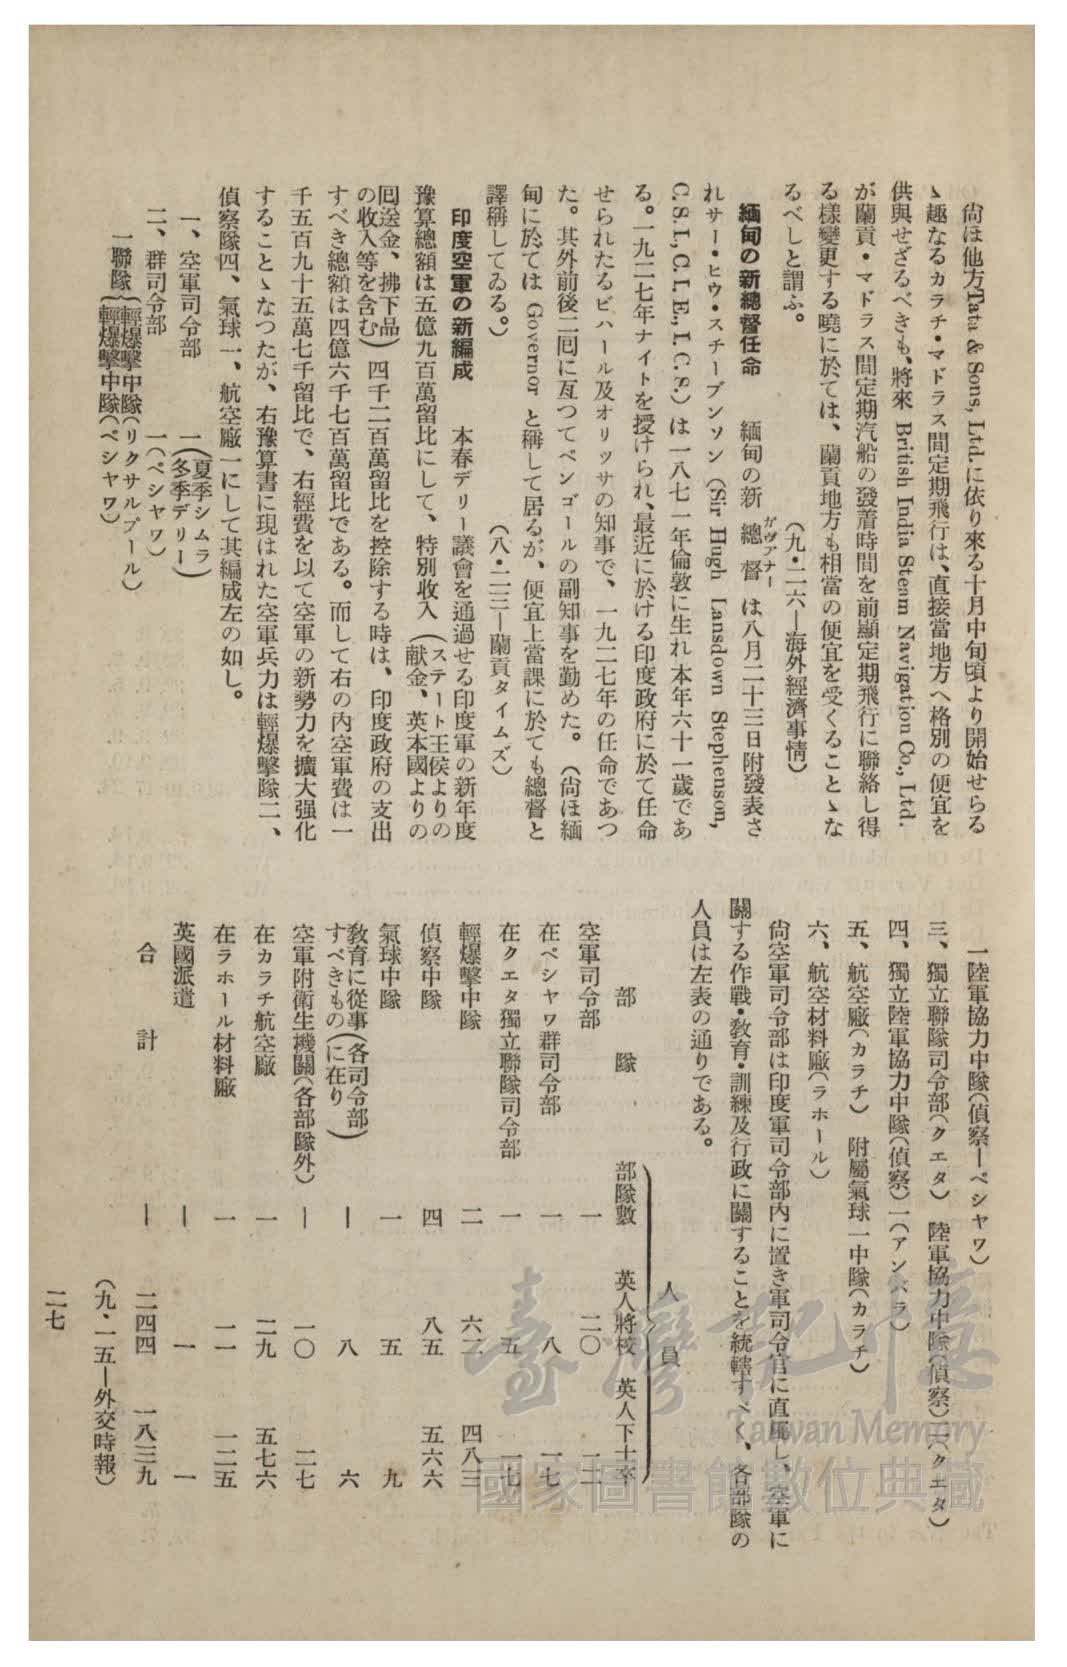 尙ほ他方Tata & Sons, Ltd.に依り來る十月中旬頃より開始せらる
ゝ趣なるカラチ・マドラス間定期飛行は、直接當地方へ格別の便宜を
供與せざるべきも、將來 British India Steam Navigation Co., Ltd.
が蘭貢・マドラス間定期汽船の發着時間を前顯定期飛行に聯絡し得
る樣變更する曉に於ては、蘭貢地方も相當の便宜を受くることゝな
るべしと謂ふ。　(九・二六―海外經濟事情)
緬甸の新總督任命　緬甸の新總督は八月二十三日附發表さ
ガヴアナー
れサー・ヒウ・スチーブンソン (Sir Hugh Lansdown Stephenson,
C. S. I., C. I. E., I. C. S.) は一八七一年倫敦に生れ本年六十一歲であ
る。一九二七年ナイトを授けられ、最近に於ける印度政府に於て任命
せられたるビハール及オリッサの知事で、一九二七年の任命であつ
た。其外前後二囘に亙つてベンゴールの副知事を勤めた。(尙ほ緬
甸に於ては Governor と稱して居るが、便宜上當課に於ても總督と
譯稱してゐる。)　(八・二三―蘭貢タイムズ)
印度空軍の新編成　本春デリー議會を通過せる印度軍の新年度
豫算總額は五億九百萬留比にして、特別收入(ステート王侯よりの
献金、英本國よりの
囘送金、拂下品
の收入等を含む)四千二百萬留比を控除する時は、印度政府の支出
すべき總額は四億六千七百萬留比である。而して右の內空軍費は一
千五百九十五萬七千留比で、右經費を以て空軍の新勢力を擴大强化
することゝなつたが、右豫算書に現はれた空軍兵力は輕爆擊隊二、
偵察隊四、氣球一、航空廠一にして其編成左の如し。
一、空軍司令部　一(夏季シムラ
冬季デリー)
二、群司令部　一(ペシヤワ)
一聯隊{輕爆擊中隊(リクサルプール)
輕爆擊中隊(ペシヤワ)
一陸軍協力中隊(偵察―ペシヤワ)
三、獨立聯隊司令部(クエタ)　陸軍協力中隊(偵察)二(クエタ)
四、獨立陸軍協力中隊(偵察)一(アンバラ)
五、航空廠(カラチ)　附屬氣球一中隊(カラチ)
六、航空材料廠(ラホール)
尙空軍司令部は印度軍司令部內に置き軍司令官に直屬し、空軍に
關する作戰・敎育・訓練及行政に關することを統轄すべく、各部隊の
人員は左表の通りである。
人員
部隊　部隊數　英人將校　英人下士卒
空軍司令部　一　二〇　一二
在ペシヤワ群司令部　一　八　一七
在クエタ獨立聯隊司令部　一　五　一七
輕爆擊中隊　二　六二　四八三
偵察中隊　四　八五　五六六
氣球中隊　一　五　九
敎育に從事(各司令部
すべきもの(に在り)　―　八　六
空軍附衞生機關(各部隊外)　―　一〇　二七
在カラチ航空廠　一　二九　五七六
在ラホール材料廠　一　一一　一二五
英國派遣　―　一　一
合計　―　二四四　一八三九
(九・一五―外交時報)
二七
臺灣記憶
Taiwan Memory
國家圖書館數位典藏